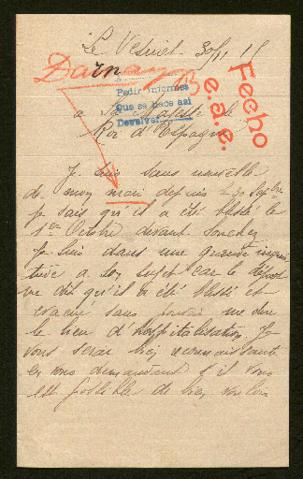 Le Vésinet 30/1 15
Darnay
Fecho
e.a.e.
Pedir informes
Que se hace asi
Devolver
a Sa Majesté le
Roi d'Espagne
Je suis sans nouvelle
de mon mari depuis
je sais qu'il a été blessé le
1er Octobre devant Souchez
Je suis dans une grande
a son sujet car le dépôt
me dit qu'il a été blessé et
évacué sans pouvoir me dire
le lieu d'hospitalisation. Je
vous serai bien reconnaissante
en vous demandant s'il vous
est possible de bien vouloir